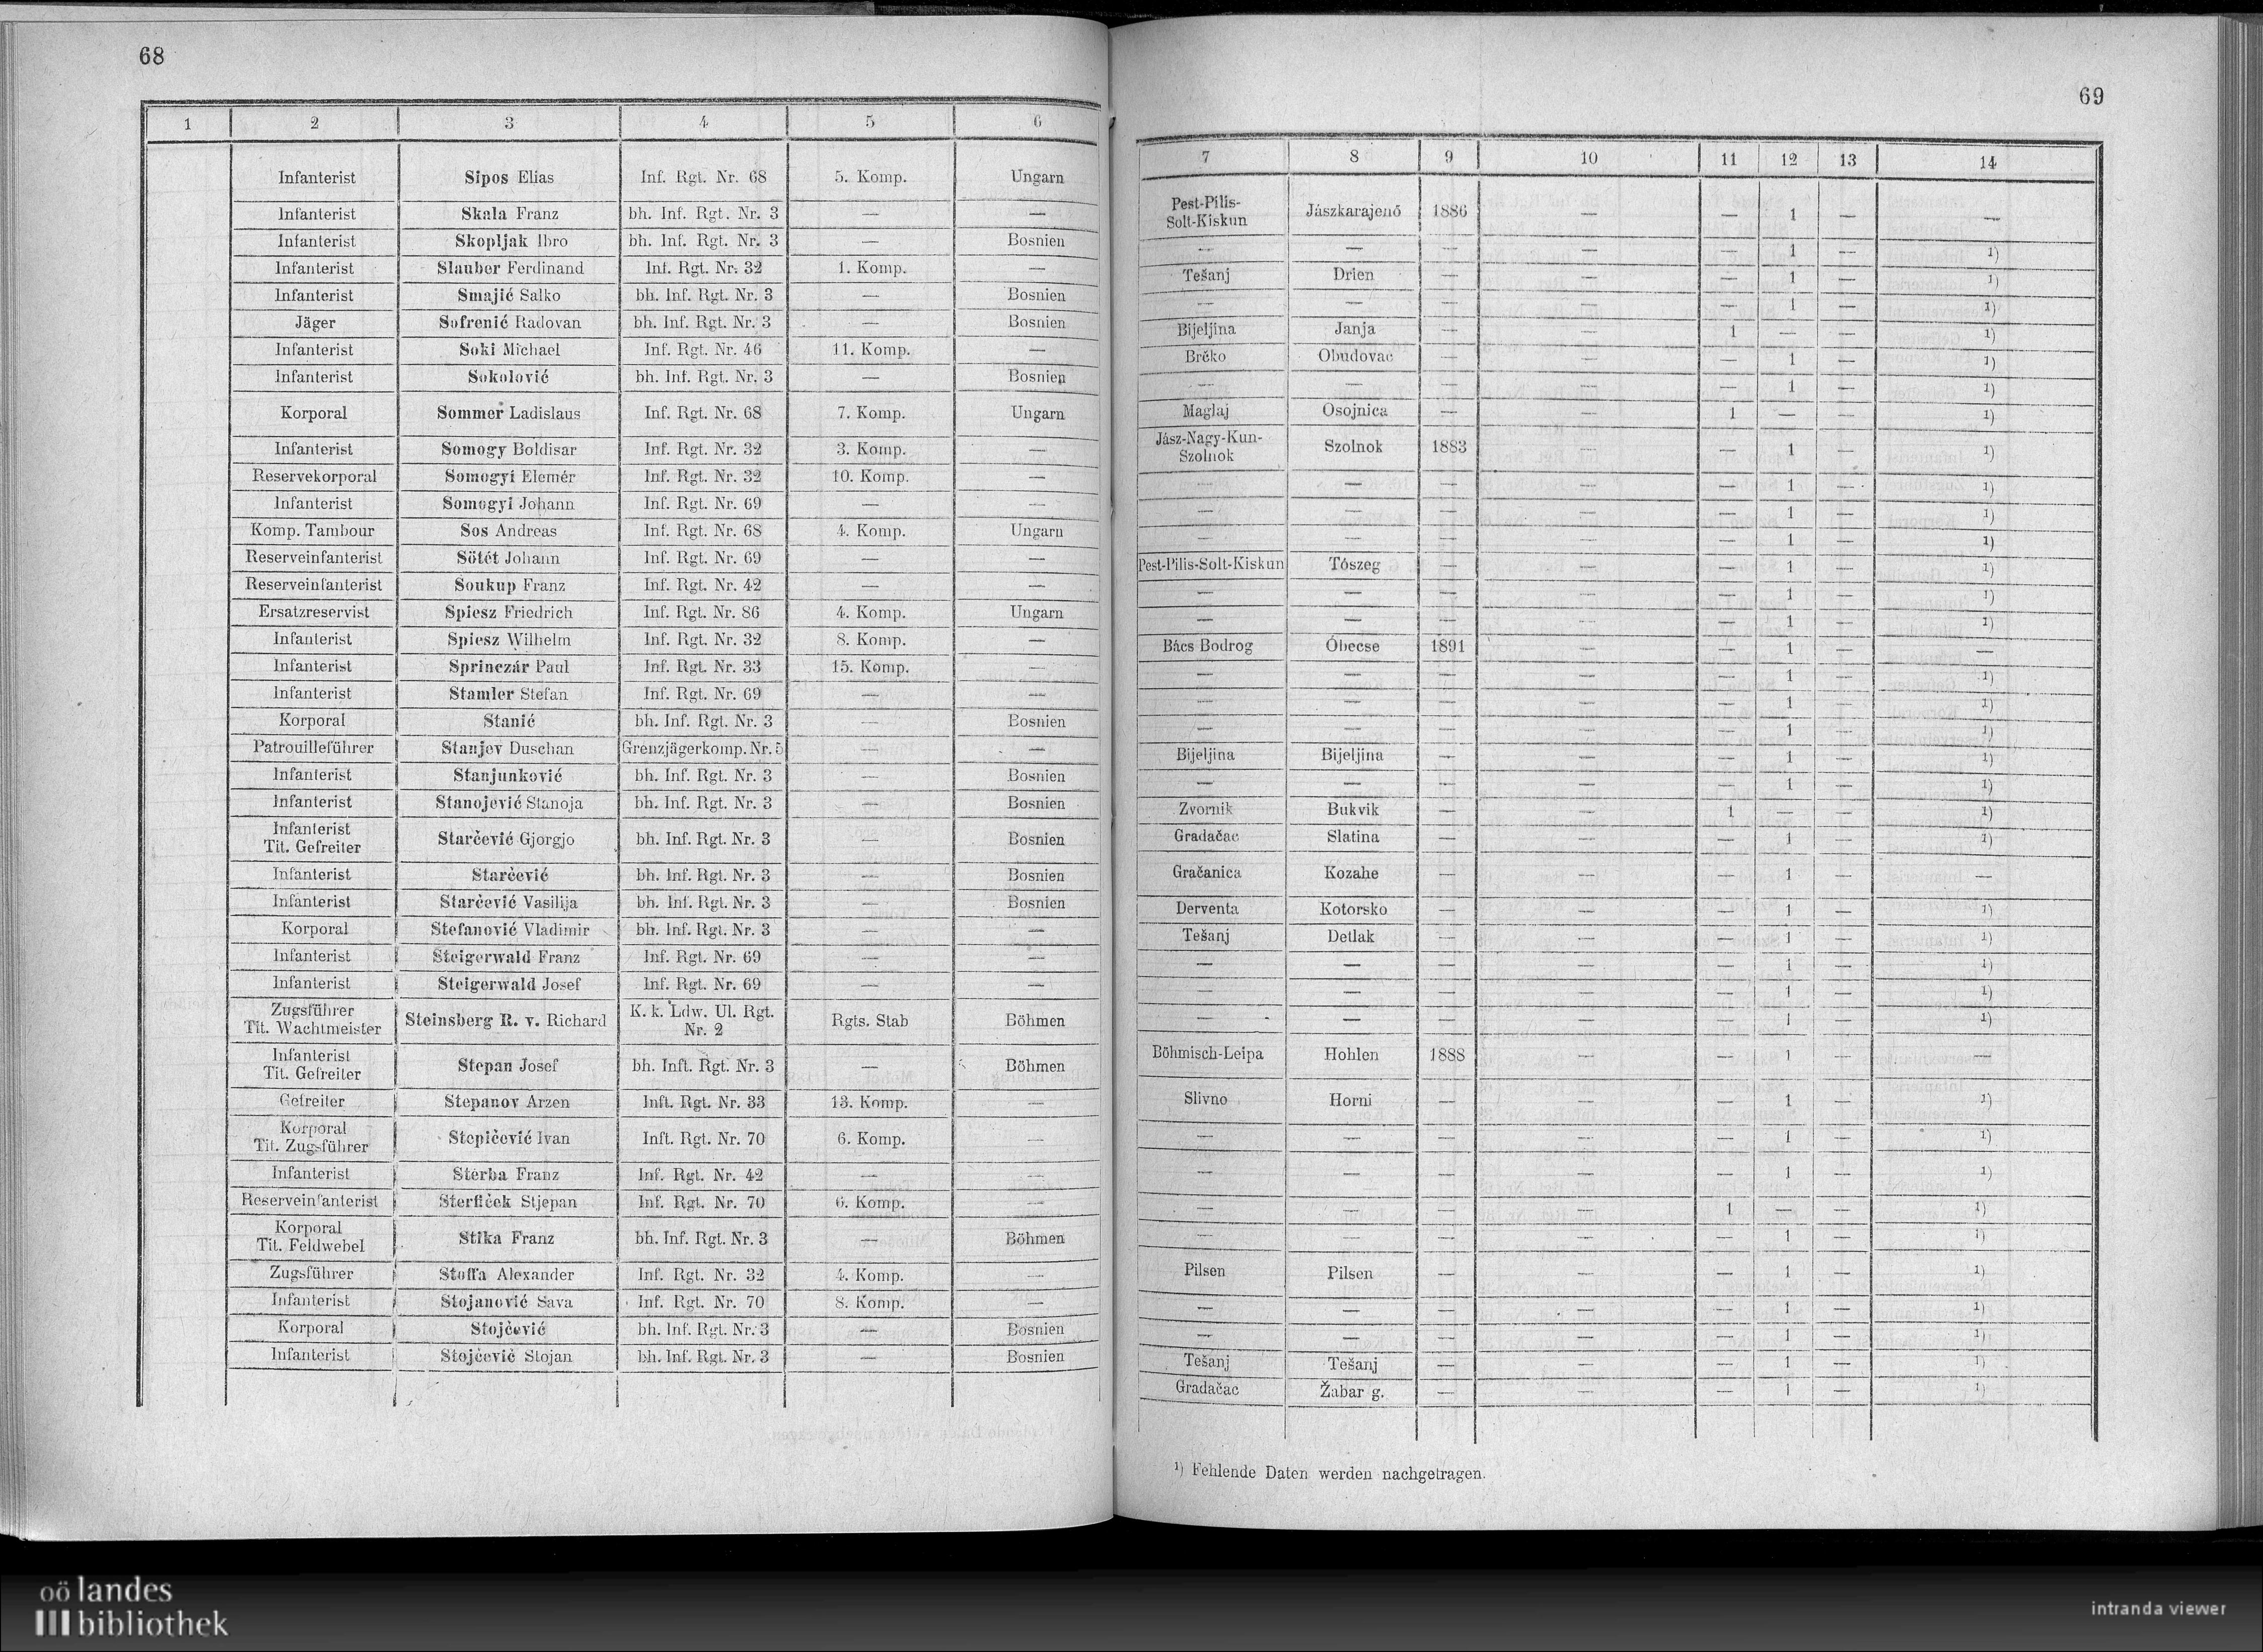 68
1 2 3 4 5 6
Infanterist Sipos Elias Inf. Rgt. Nr. 68 5. Komp. Ungarn
Infanterist Skala Franz bh. Inf. Rgt. Nr. 3 — —
Infanterist Skopljak Ibro bh. Inf. Rgt. Nr. 3 — Bosnien
Infanterist Slauber Ferdinand Inf. Rgt. Nr. 32 1. Komp. —
Infanterist Smajić Salko bh. Inf. Rgt. Nr. 3 — Bosnien
Jäger Sofrenić Radovan bh. Inf. Rgt. Nr. 3 — Bosnien
Infanterist Soki Michael Inf. Rgt. Nr. 46 11. Komp. —
Infanterist Sokolović bh. Inf. Rgt. Nr. 3 — Bosnien
Korporal Sommer Ladislaus Inf. Rgt. Nr. 68 7. Komp. Ungarn
Infanterist Somogy Boldisar Inf. Rgt. Nr. 32 3. Komp. —
Reservekorporal Somogyi Elemér Inf. Rgt. Nr. 32 10. Komp. —
Infanterist Somogyi Johann Inf. Rgt. Nr. 69 — —
Komp. Tambour Sos Andreas Inf. Rgt. Nr. 68 4. Komp. Ungarn
Reserveinfanterist Sötét Johann Inf. Rgt. Nr. 69 — —
Reserveinfanterist Soukup Franz Inf. Rgt. Nr. 42 — —
Ersatzreservist Spiesz Friedrich Inf. Rgt. Nr. 86 4. Komp. Ungarn
Infanterist Spiesz Wilhelm Inf. Rgt. Nr. 32 8. Komp. —
Infanterist Sprinczár Paul Inf. Rgt. Nr. 33 15. Komp. —
Infanterist Stamler Stefan Inf. Rgt. Nr. 69 — —
Korporal Stanić bh. Inf. Rgt. Nr. 3 — Bosnien
Patrouilleführer Stanjev Duschan Grenzjägerkomp. Nr. 5 — —
Infanterist Stanjunković bh. Inf. Rgt. Nr. 3 — Bosnien
Infanterist Stanojević Stanoja bh. Inf. Rgt. Nr. 3 — Bosnien
Infanterist
Tit. Gefreiter Starčević Gjorgjo bh. Inf. Rgt. Nr. 3 — Bosnien
Infanterist Starčević bh. Inf. Rgt. Nr. 3 — Bosnien
Infanterist Starčević Vasilija bh. Inf. Rgt. Nr. 3 — Bosnien
Korporal Stefanović Vladimir bh. Inf. Rgt. Nr. 3 — —
Infanterist Steigerwald Franz Inf. Rgt. Nr. 69 — —
Infanterist Steigerwald Josef Inf. Rgt. Nr. 69 — —
Zugsführer K. k. Ldw. Ul. Rgt.
Tit. Wachtmeister Steinsberg R. v. Richard Nr. 2 Rgts. Stab Böhmen
Infanterist
Tit. Gefreiter Stepan Josef bh. Inft. Rgt. Nr. 3 — Böhmen
Gefreiter Stepanov Arzen Inft. Rgt. Nr. 33 13. Komp. —
Korporal
Tit. Zugsführer Stepičević Ivan Inft. Rgt. Nr. 70 6. Komp. —
Infanterist Sterba Franz Inf. Rgt. Nr. 42 — —
Reserveinfanterist Sterliček Stjepan Inf. Rgt. Nr. 70 6. Komp. —
Korporal
Tit. Feldwebel Stika Franz bh. Inf. Rgt. Nr. 3 — Böhmen
Zugsführer Stoffa Alexander Inf. Rgt. Nr. 32 4. Komp. —
Infanterist Stojanović Sava Inf. Rgt. Nr. 70 8. Komp. —
Korporal Stojčević bh. Inf. Rgt. Nr. 3 — Bosnien
Infanterist Stojčević Stojan bh. Inf. Rgt. Nr. 3 — Bosnien
69
7 8 9 10 11 12 13 14
Pest-Pilis-
Solt-Kiskun Jászkarajenő 1886 — — 1 — —
— — — — — 1 — 1)
Tešanj Drien — — — 1 — 1)
— — — — — 1 — 1)
Bijeljina Janja — — 1 — — 1)
Brčko Obudovac — — — 1 — 1)
— — — — — 1 — 1)
Maglaj Osojnica — — 1 — — 1)
Jász-Nagy-Kun-
Szolnok Szolnok 1883 — — 1 — 1)
— — — — — 1 — 1)
— — — — — 1 — 1)
— — — — — 1 — 1)
Pest-Pilis-Solt-Kiskun Tószeg — — — 1 — 1)
— — — — — 1 — 1)
— — — — — 1 — 1)
Bács Bodrog Óbecse 1891 — — 1 — —
— — — — — 1 — 1)
— — — — — 1 — 1)
— — — — — 1 — 1)
Bijeljina Bijeljina — — — 1 — 1)
— — — — — 1 — 1)
Zvornik Bukvik — — 1 — — 1)
Gradačac Slatina — — — 1 — 1)
Gračanica Kozahe — — — 1 — —
Derventa Kotorsko — — — 1 — 1)
Tešanj Detlak — — — 1 — 1)
— — — — — 1 — 1)
— — — — — 1 — 1)
— — — — — 1 — 1)
Böhmisch-Leipa Hohlen 1888 — — 1 — —
Slivno Horni — — — 1 — 1)
— — — — — 1 — 1)
— — — — — 1 — 1)
— — — — 1 — — 1)
— — — — — 1 — 1)
Pilsen Pilsen — — — 1 — 1)
— — — — — 1 — 1)
— — — — — 1 — 1)
Tešanj Tešanj — — — 1 — 1)
Gradačac Žabar g. — — — 1 — 1)
1) Fehlende Daten werden nachgetragen.
oö landes
bibliothek
intranda viewer